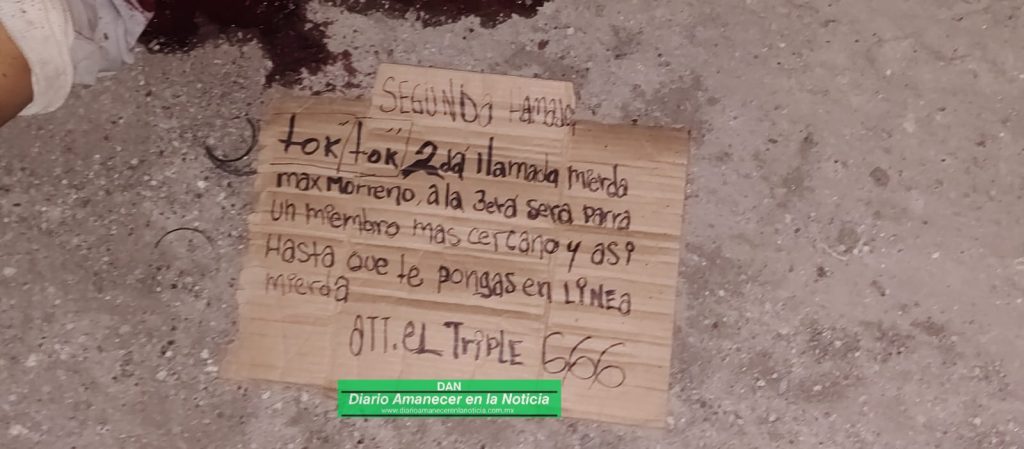 SEGUNDA LLAMADA
tok tok 2da llamada mierda
max Morreno, a la 3era sera parra
un miembro mas cercano y asi
Hasta que te pongas en LiNEa
mierda
ATT. EL TRiPLE 666
DAN
Diario Amanecer en la Noticia
www.diarioamanecerenlanoticia.com.mx